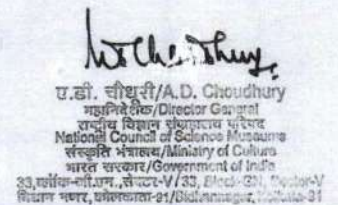 ए.डी. चौधुरी/A.D. Choudhury
महानिदेशक/Director General
राष्ट्रीय विज्ञान संग्रहालय परिषद
National Council of Science Museums
संस्कृति मंत्रालय/Ministry of Culture
भारत सरकार/Government of India
33,ब्लॉक-जी.एन.,सैक्टर-V/33, Block-GN, Sector-V
विधान नगर, कोलकाता-91/Bidhannagar, Kolkata-91